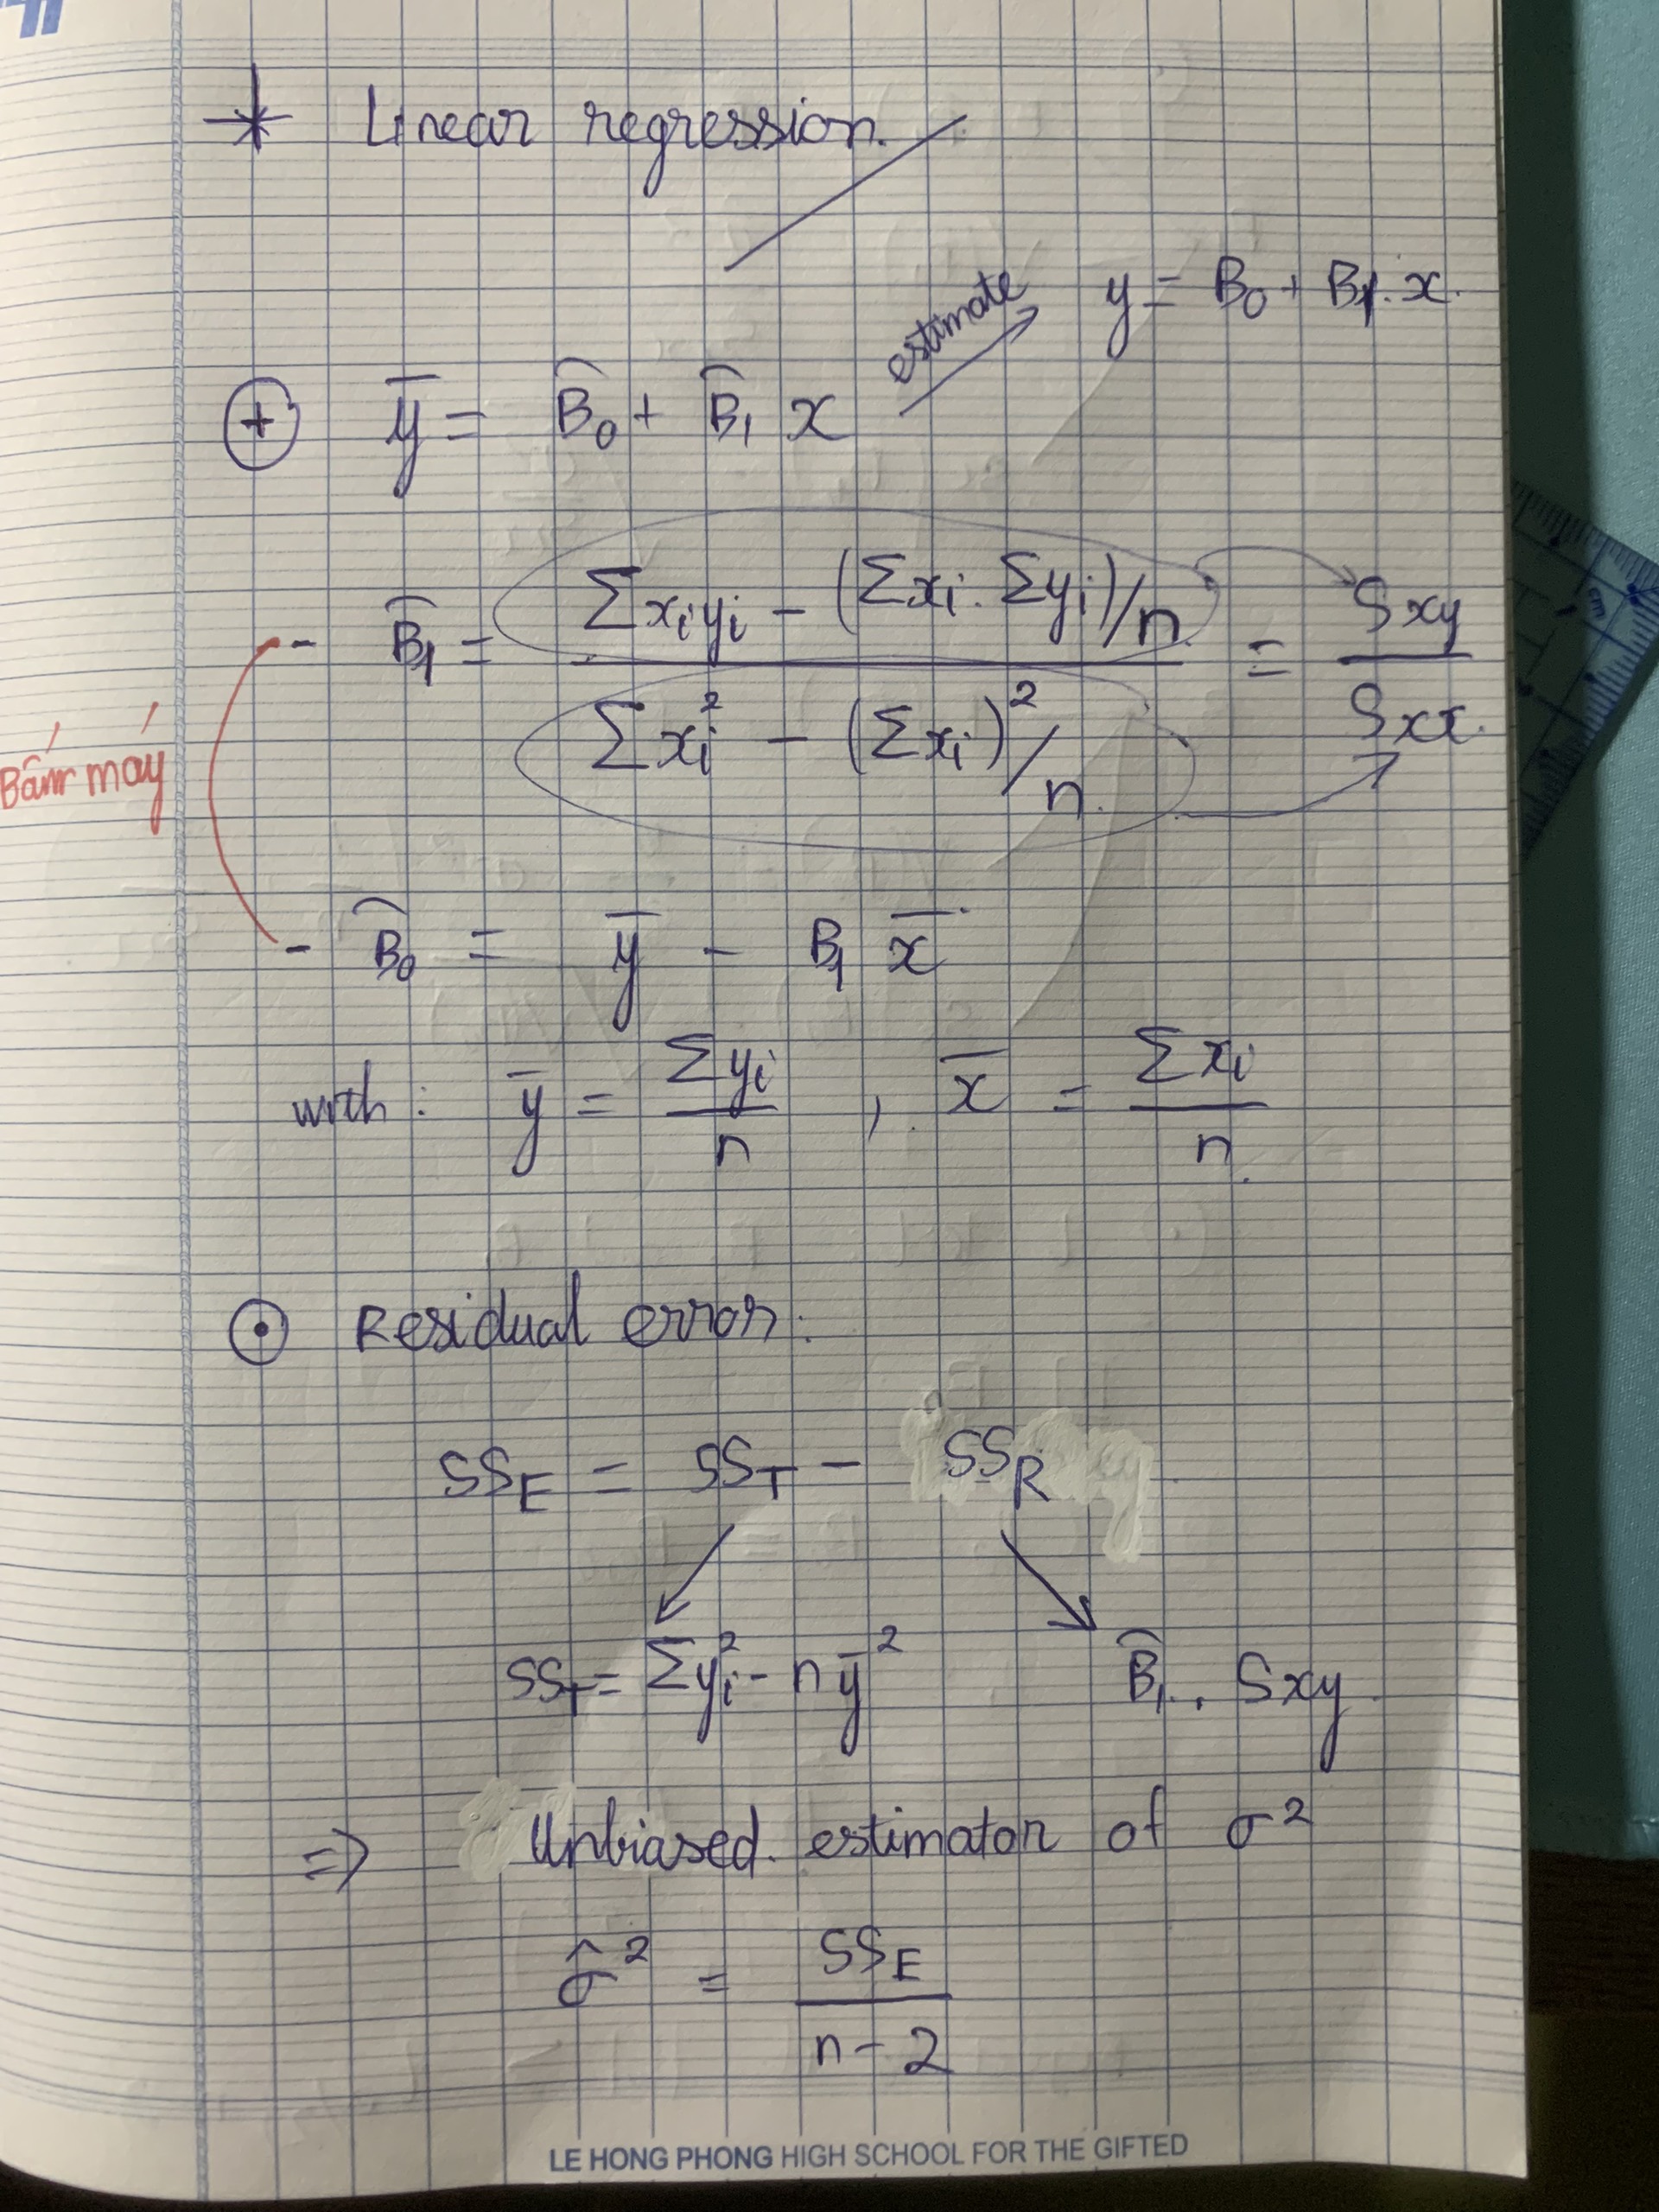 * Linear regression.
estimate y = B₀ + B₁.x.
⊕ y̅ = B̂₀ + B̂₁ x
- B̂₁ = (Σxᵢyᵢ - (Σxᵢ.Σyᵢ)/n) / (Σxᵢ² - (Σxᵢ)²/n.) = Sxy / Sxx.
Bấm máy
- B̂₀ = y̅ - B₁ x̅
with: y̅ = Σyᵢ / n , x̅ = Σxᵢ / n.
⊙ Residual error:
SS_E = SS_T - SS_R
SS_T = Σyᵢ² - n y̅² B̂₁ . Sxy
=> Unbiased estimator of σ²
σ̂² = SS_E / n-2
LE HONG PHONG HIGH SCHOOL FOR THE GIFTED